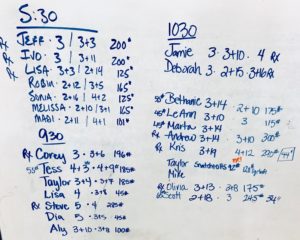 5:30
Rx JEFF · 3 / 3+3 200#
Rx IVO · 3 / 3+11 200*
Rx LISA · 3+3 / 2+14 125#
ROBIN · 2+12 / 3+5 165
SONIA · 2+16 / 4+2 125
MELISSA · 2+10 / 3+1 165*
MABI · 2+11 / 4+1 101#
930
Rx Corey 3 · 3+6 196#
55# Tess 4 · 3 · 4+9 185#
Taylor 3+4 185#
Lisa 4 · 3+8 45#
Rx Steve 5 · 4 285#
Dia 5 · 45#
Aly 3+10 · 3+8 100#
1030
Jamie 3 · 3+10 · 4 Rx
Deborah 3 · 2+15 · 3+16 Rx
Bethanie 3+14 2+10 175#
LeAnn 3+10 3 115#
Marta 3+14
Rx Andrew 3+14 3+10 200#
Rx Kris 4+12 220#
Taylor
Mike
Rx Olivia 3+13 · 2+8 175#
Scott 2+18 · 3 245#